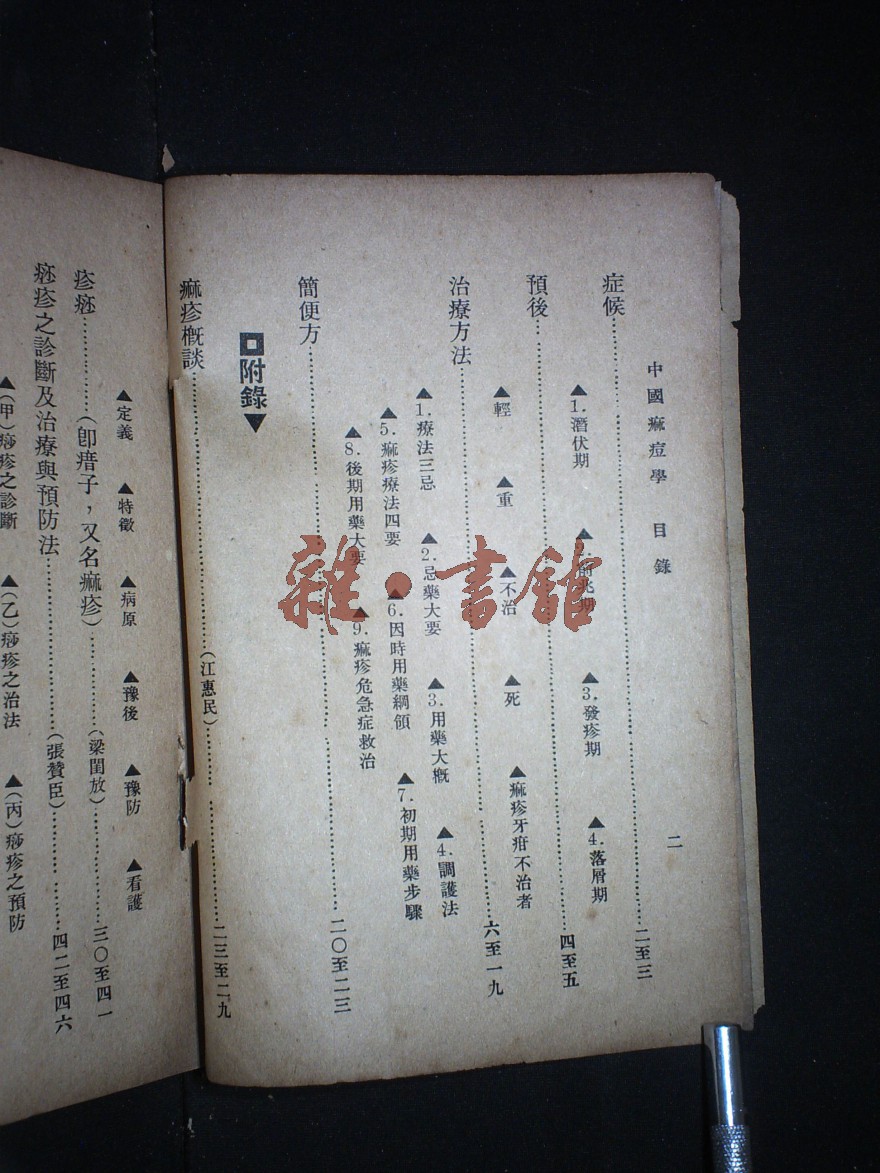 中國痲痘學 目錄 二
症候………二至三
▲1.潛伏期 ▲2.前兆期 ▲3.發疹期 ▲4.落屑期
預後………四至五
▲輕 ▲重 ▲不治 ▲死 ▲痲疹牙疳不治者
治療方法………六至一九
▲1.療法三忌 ▲2.忌藥大要 ▲3.用藥大概 ▲4.調護法
▲5.痲疹療法四要 ▲6.因時用藥綱領 ▲7.初期用藥步驟
▲8.後期用藥大要 ▲9.痲疹危急症救治
簡便方………二〇至二三
附錄▼
痲疹概談………(江惠民)………二三至二九
▲定義 ▲特徵 ▲病原 ▲豫後 ▲豫防 ▲看護
疹痧………(卽瘄子，又名痲疹)………(梁閏放)………三〇至四一
痧疹之診斷及治療與預防法………(張贊臣)………四二至四六
▲(甲)痧疹之診斷 ▲(乙)痧疹之治法 ▲(丙)痧疹之預防
雜·書館